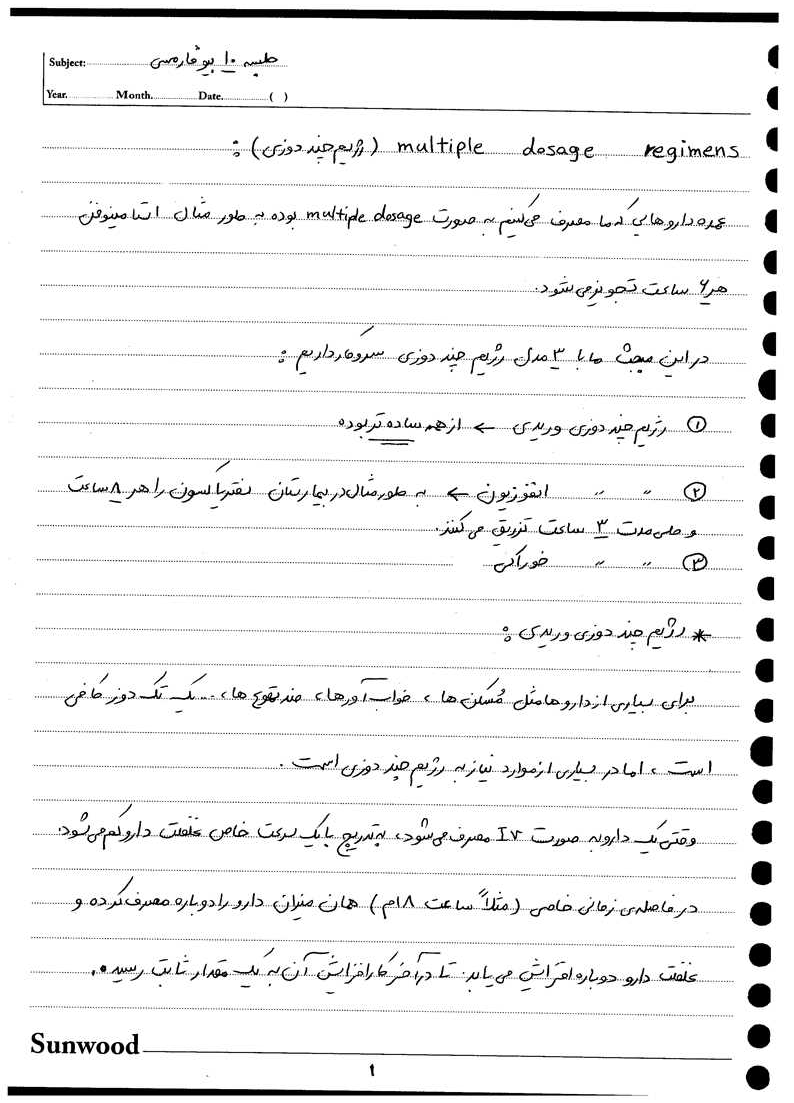 Subject: جلسه ۱۰ بیوفارمسی
Year. Month. Date. ( )
multiple dosage regimens (رژیم چند دوزی) :
عمده داروهایی که ما مصرف می‌کنیم به صورت multiple dosage بوده به طور مثال استامینوفن
هر ۶ ساعت تجویز می‌شود.
در این مبحث ما با ۳ مدل رژیم چند دوزی سروکار داریم :
① رژیم چند دوزی وریدی ← از همه ساده تر بوده
② " " انفوزیون ← به طور مثال در بیمارستان سفتریاکسون را هر ۸ ساعت
و طی مدت ۳ ساعت تزریق می کنند.
③ " " خوراکی
* رژیم چند دوزی وریدی :
برای بسیاری از داروها مثل مُسکن ها ، خواب آورها ، ضد تهوع ها ، ... یک تک دوز کافی
است ، اما در بسیاری از موارد نیاز به رژیم چند دوزی است .
وقتی یک دارو به صورت IV مصرف می‌شود، به تدریج با یک سرعت خاص غلظت دارو کم می‌شود.
در فاصله‌ی زمانی خاصی (مثلاً ساعت ۸ام) همان میزان دارو را دوباره مصرف کرده و
غلظت دارو دوباره افزایش می یابد. تا در آخر کار افزایش آن به یک مقدار ثابت رسیده.
Sunwood
۱